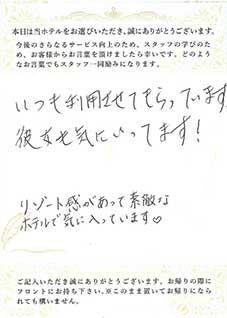 本日は当ホテルをお選びいただき、誠にありがとうございます。
今後のさらなるサービス向上のため、スタッフの学びのため、
お客様からお言葉を頂けましたら幸いです。どのような
お言葉でもスタッフ一同励みになります。
いつも利用させてもらっています
彼女も気にいってます!
リゾート感があって素敵な
ホテルで気に入っています♡
ご記入いただき誠にありがとうございます。お帰りの際に
フロントにお持ち下さい。※このまま置いてお帰りになら
れても構いません。